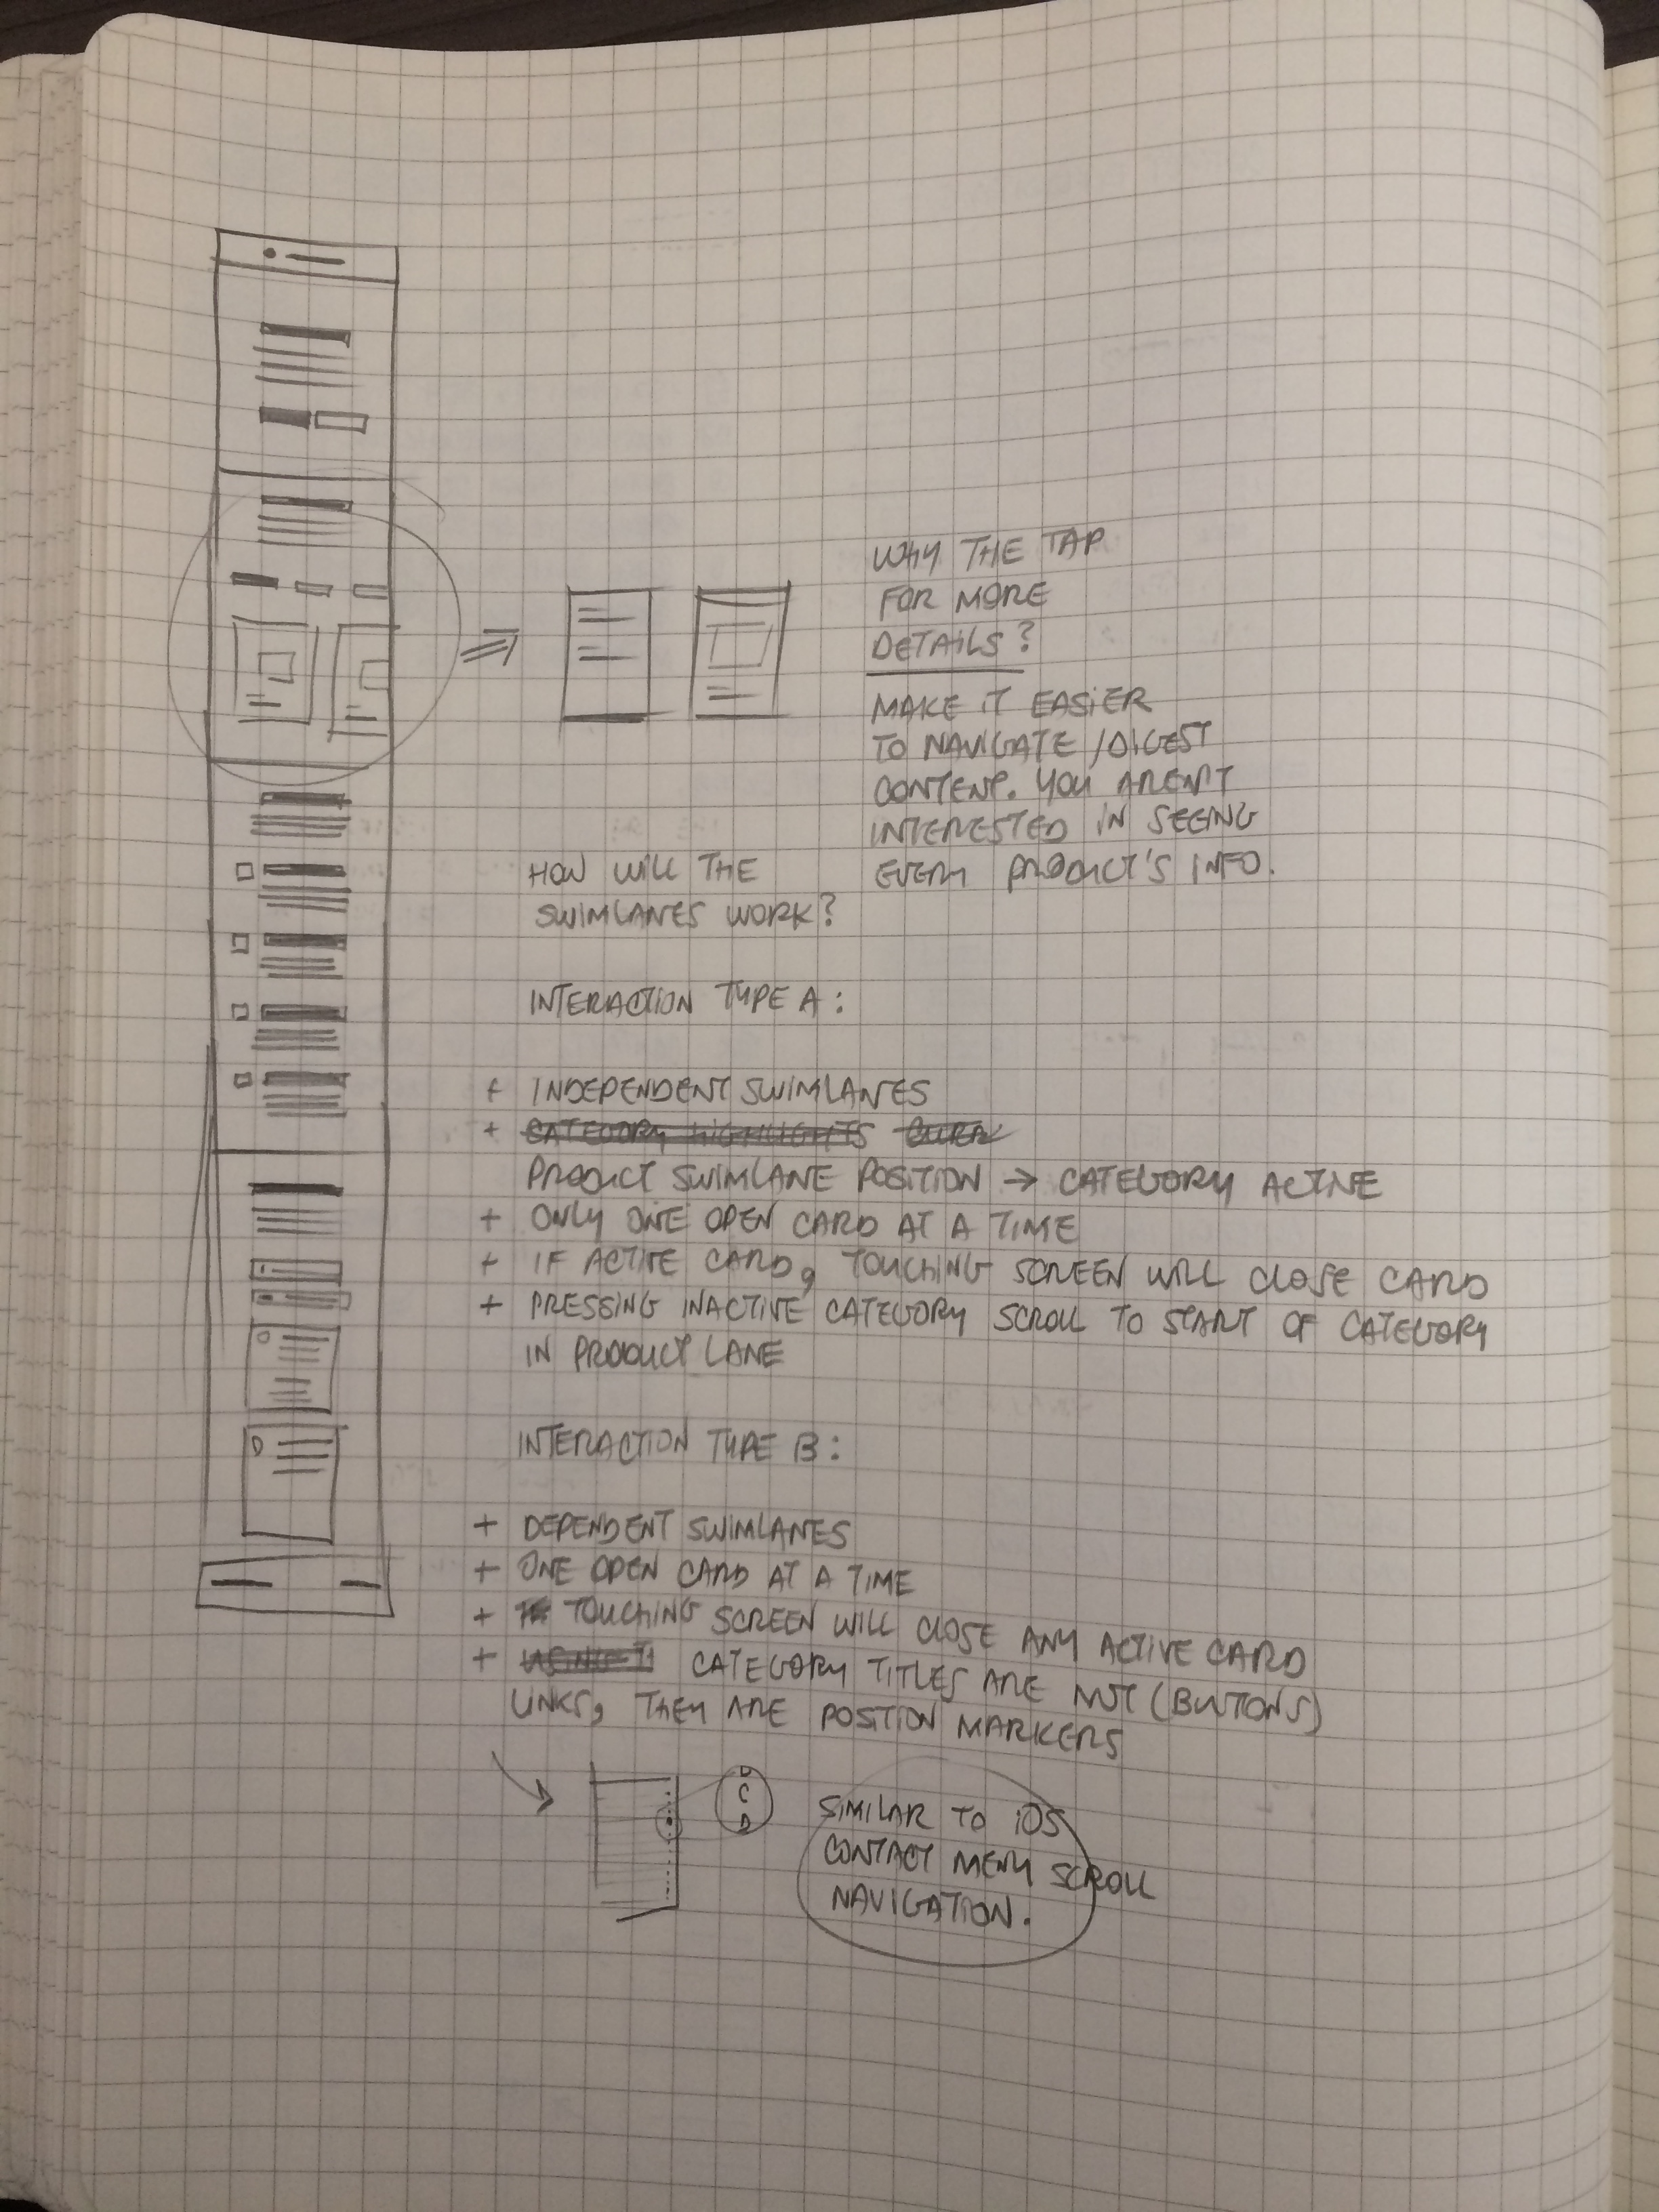 WHY THE TAP
FOR MORE
DETAILS?
MAKE IT EASIER
TO NAVIGATE / DIGEST
CONTENT. YOU AREN'T
INTERESTED IN SEEING
EVERY PRODUCT'S INFO.
HOW WILL THE
SWIMLANES WORK?
INTERACTION TYPE A:
+ INDEPENDENT SWIMLANES
+ CATEGORY HIGHLIGHTS
PRODUCT SWIMLANE POSITION → CATEGORY ACTIVE
+ ONLY ONE OPEN CARD AT A TIME
+ IF ACTIVE CARD, TOUCHING SCREEN WILL CLOSE CARD
+ PRESSING INACTIVE CATEGORY SCROLL TO START OF CATEGORY
IN PRODUCT LANE
INTERACTION TYPE B:
+ DEPENDENT SWIMLANES
+ ONE OPEN CARD AT A TIME
+ TOUCHING SCREEN WILL CLOSE ANY ACTIVE CARD
+ CATEGORY TITLES ARE NOT (BUTTONS)
LINKS, THEY ARE POSITION MARKERS
C
D
SIMILAR TO iOS
CONTACT MENU SCROLL
NAVIGATION.